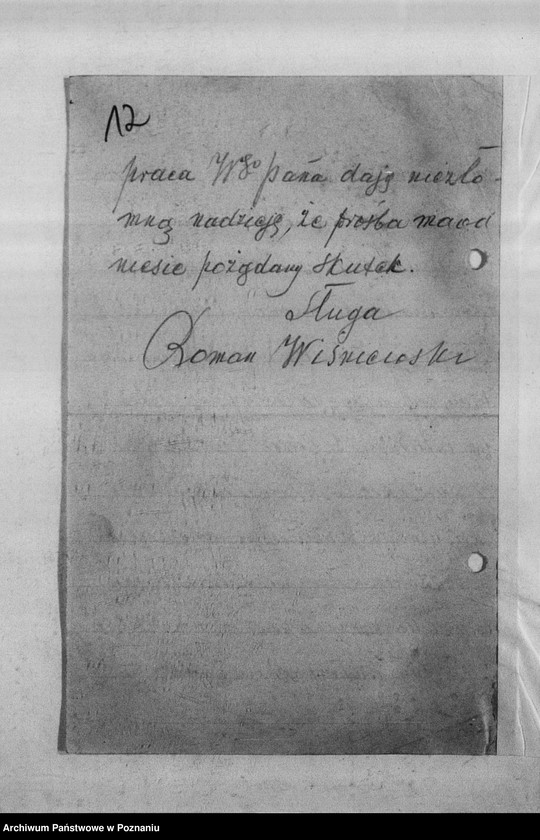 12
praca Wgo pana dają niezło-
mną nadzieję, że prośba ma od
niesie pożądany skutek.
Sługa
Roman Wiśniewski
Archiwum Państwowe w Poznaniu